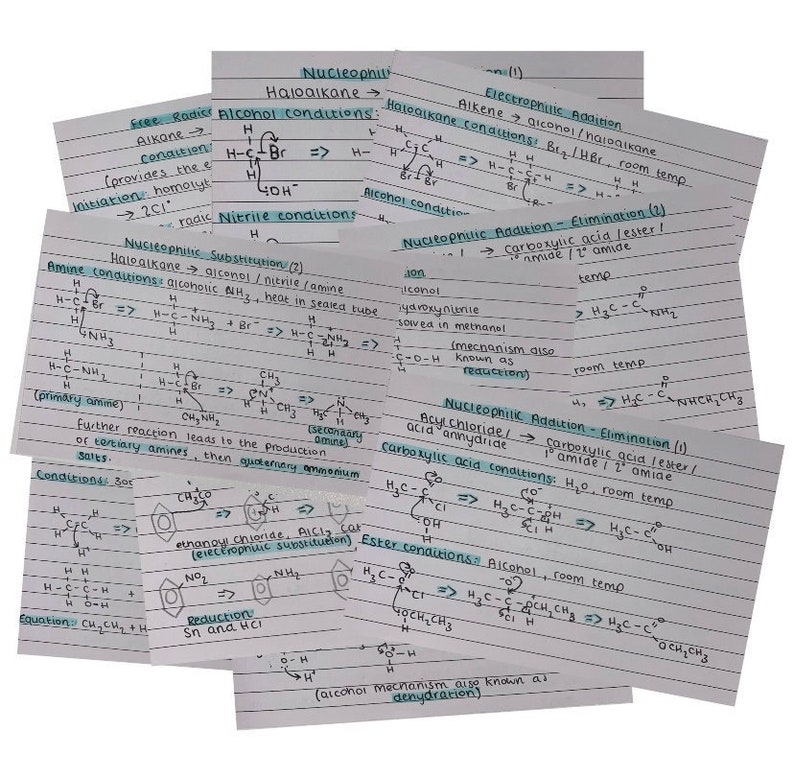 Nucleophili
(1)
Haloalkane →
Alcohol conditions:
H
H-C-Br => H-
H
:OH⁻
Nitrile conditions
H
Free Radic
Alkane →
condition
(provides the e
Initiation: homolyt
→ 2Cl•
radic
Electrophilic Addition
Alkene → alcohol/haloalkane
Haloalkane conditions: Br₂/HBr, room temp
H H
C=C
H H
Br-Br
=>
H H
H-C-C⁺-H
Br
=>
H H
Alcohol conditio
Nucleophilic Addition - Elimination (2)
→ carboxylic acid /ester/
1° amide / 2° amide
temp
H₃C-C
O
NH₂
room temp
=> H₃C-C
O
NHCH₂CH₃
Nucleophilic Substitution (2)
Haloalkane → alcohol/nitrile/amine
Amine conditions: alcoholic NH₃, heat in sealed tube
H
H-C-Br => H-C-NH₃ + Br⁻ => H-C-NH₂ =>
H
:NH₃
H
H-C-NH₂
H
(primary amine)
H
H-C-Br => => 
CH₃NH₂
CH₃
N⁺
H CH₃
H₃C N CH₃
(secondary
amine)
further reaction leads to the production
of tertiary amines, then quaternary ammonium
salts.
ion
lcohol
ydroxynitrile
solved in methanol
C-O-H
(mechanism also
known as
reduction)
Nucleophilic Addition - Elimination (1)
Acylchloride/ → carboxylic acid /ester/
acid anhydride 1° amide / 2° amide
Carboxylic acid conditions: H₂O, room temp
H₃C-C
O
Cl
:OH
H
=>
H₃C-C-OH
Cl H
=>
H₃C-C
O
OH
Ester conditions: Alcohol, room temp
H₃C-C
O
Cl
:OCH₂CH₃
H
=>
H₃C-C-OCH₂CH₃
Cl H
=> H₃C-C
O
OCH₂CH₃
Conditions: 300
H H
C=C
H H
H⁺
=>
H H
H-C-C-H +
H O-H
Equation: CH₂CH₂ + H
CH₃CO
=> =>
ethanoyl chloride, AlCl₃ cat
(electrophilic substitution)
NO₂ => NH₂ =>
Reduction
Sn and HCl
O-H
H⁺
O-H
(alcohol mechanism also known as
dehydration)